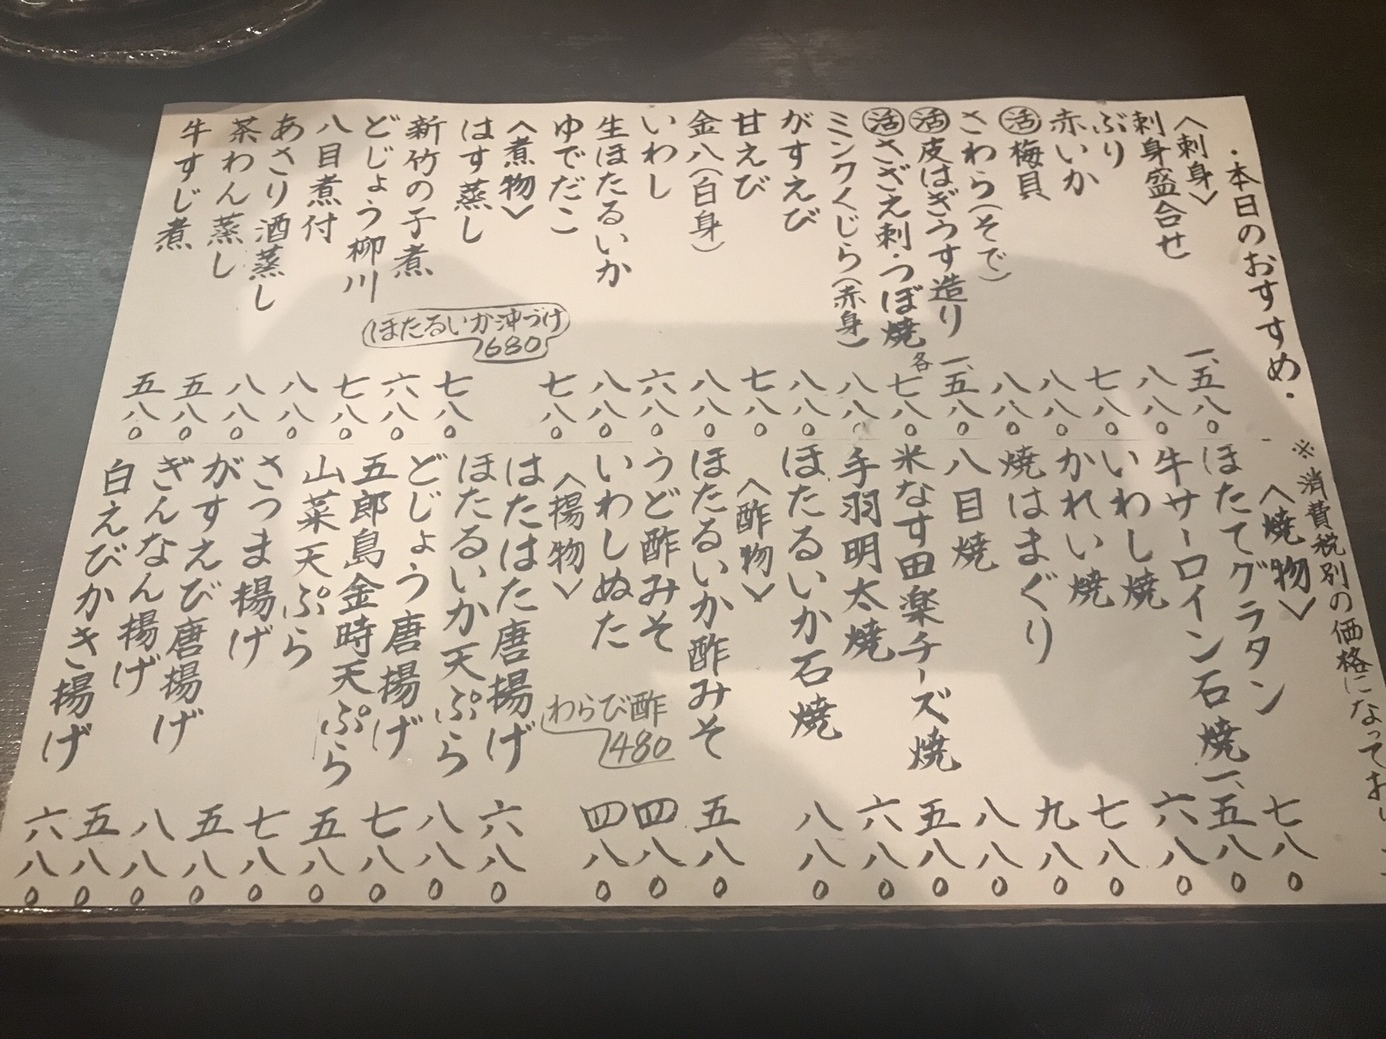 ・本日のおすすめ・
※消費税別の価格になってお
〈刺身〉
刺身盛合せ 一、五八〇
ぶり 八八〇
赤いか 七八〇
㊗活梅貝 八八〇
さわら(そで) 八八〇
活皮はぎうす造り 一、五八〇
活さざえ刺・つぼ焼 各七八〇
ミンクくじら(赤身) 八八〇
がすえび 八八〇
甘えび 七八〇
金八(白身) 八八〇
いわし 六八〇
生ほたるいか 八八〇
ゆでだこ 七八〇
〈煮物〉
はす蒸し 七八〇
新竹の子煮 六八〇
どじょう柳川 七八〇
八目煮付 八八〇
あさり酒蒸し 八八〇
茶わん蒸し 五八〇
牛すじ煮 五八〇
ほたるいか沖づけ
680
〈焼物〉
ほたてグラタン 七八〇
牛サーロイン石焼 一、五八〇
いわし焼 六八〇
かれい焼 七八〇
焼はまぐり 九八〇
八目焼 八八〇
米なす田楽チーズ焼 五八〇
手羽明太焼 六八〇
ほたるいか石焼 八八〇
〈酢物〉
ほたるいか酢みそ 五八〇
うど酢みそ 四八〇
いわしぬた 四八〇
わらび酢
480
〈揚物〉
はたはた唐揚げ 六八〇
ほたるいか天ぷら 八八〇
どじょう唐揚げ 七八〇
五郎島金時天ぷら 五八〇
山菜天ぷら 七八〇
さつま揚げ 五八〇
がすえび唐揚げ 八八〇
ぎんなん揚げ 五八〇
白えびかき揚げ 六八〇